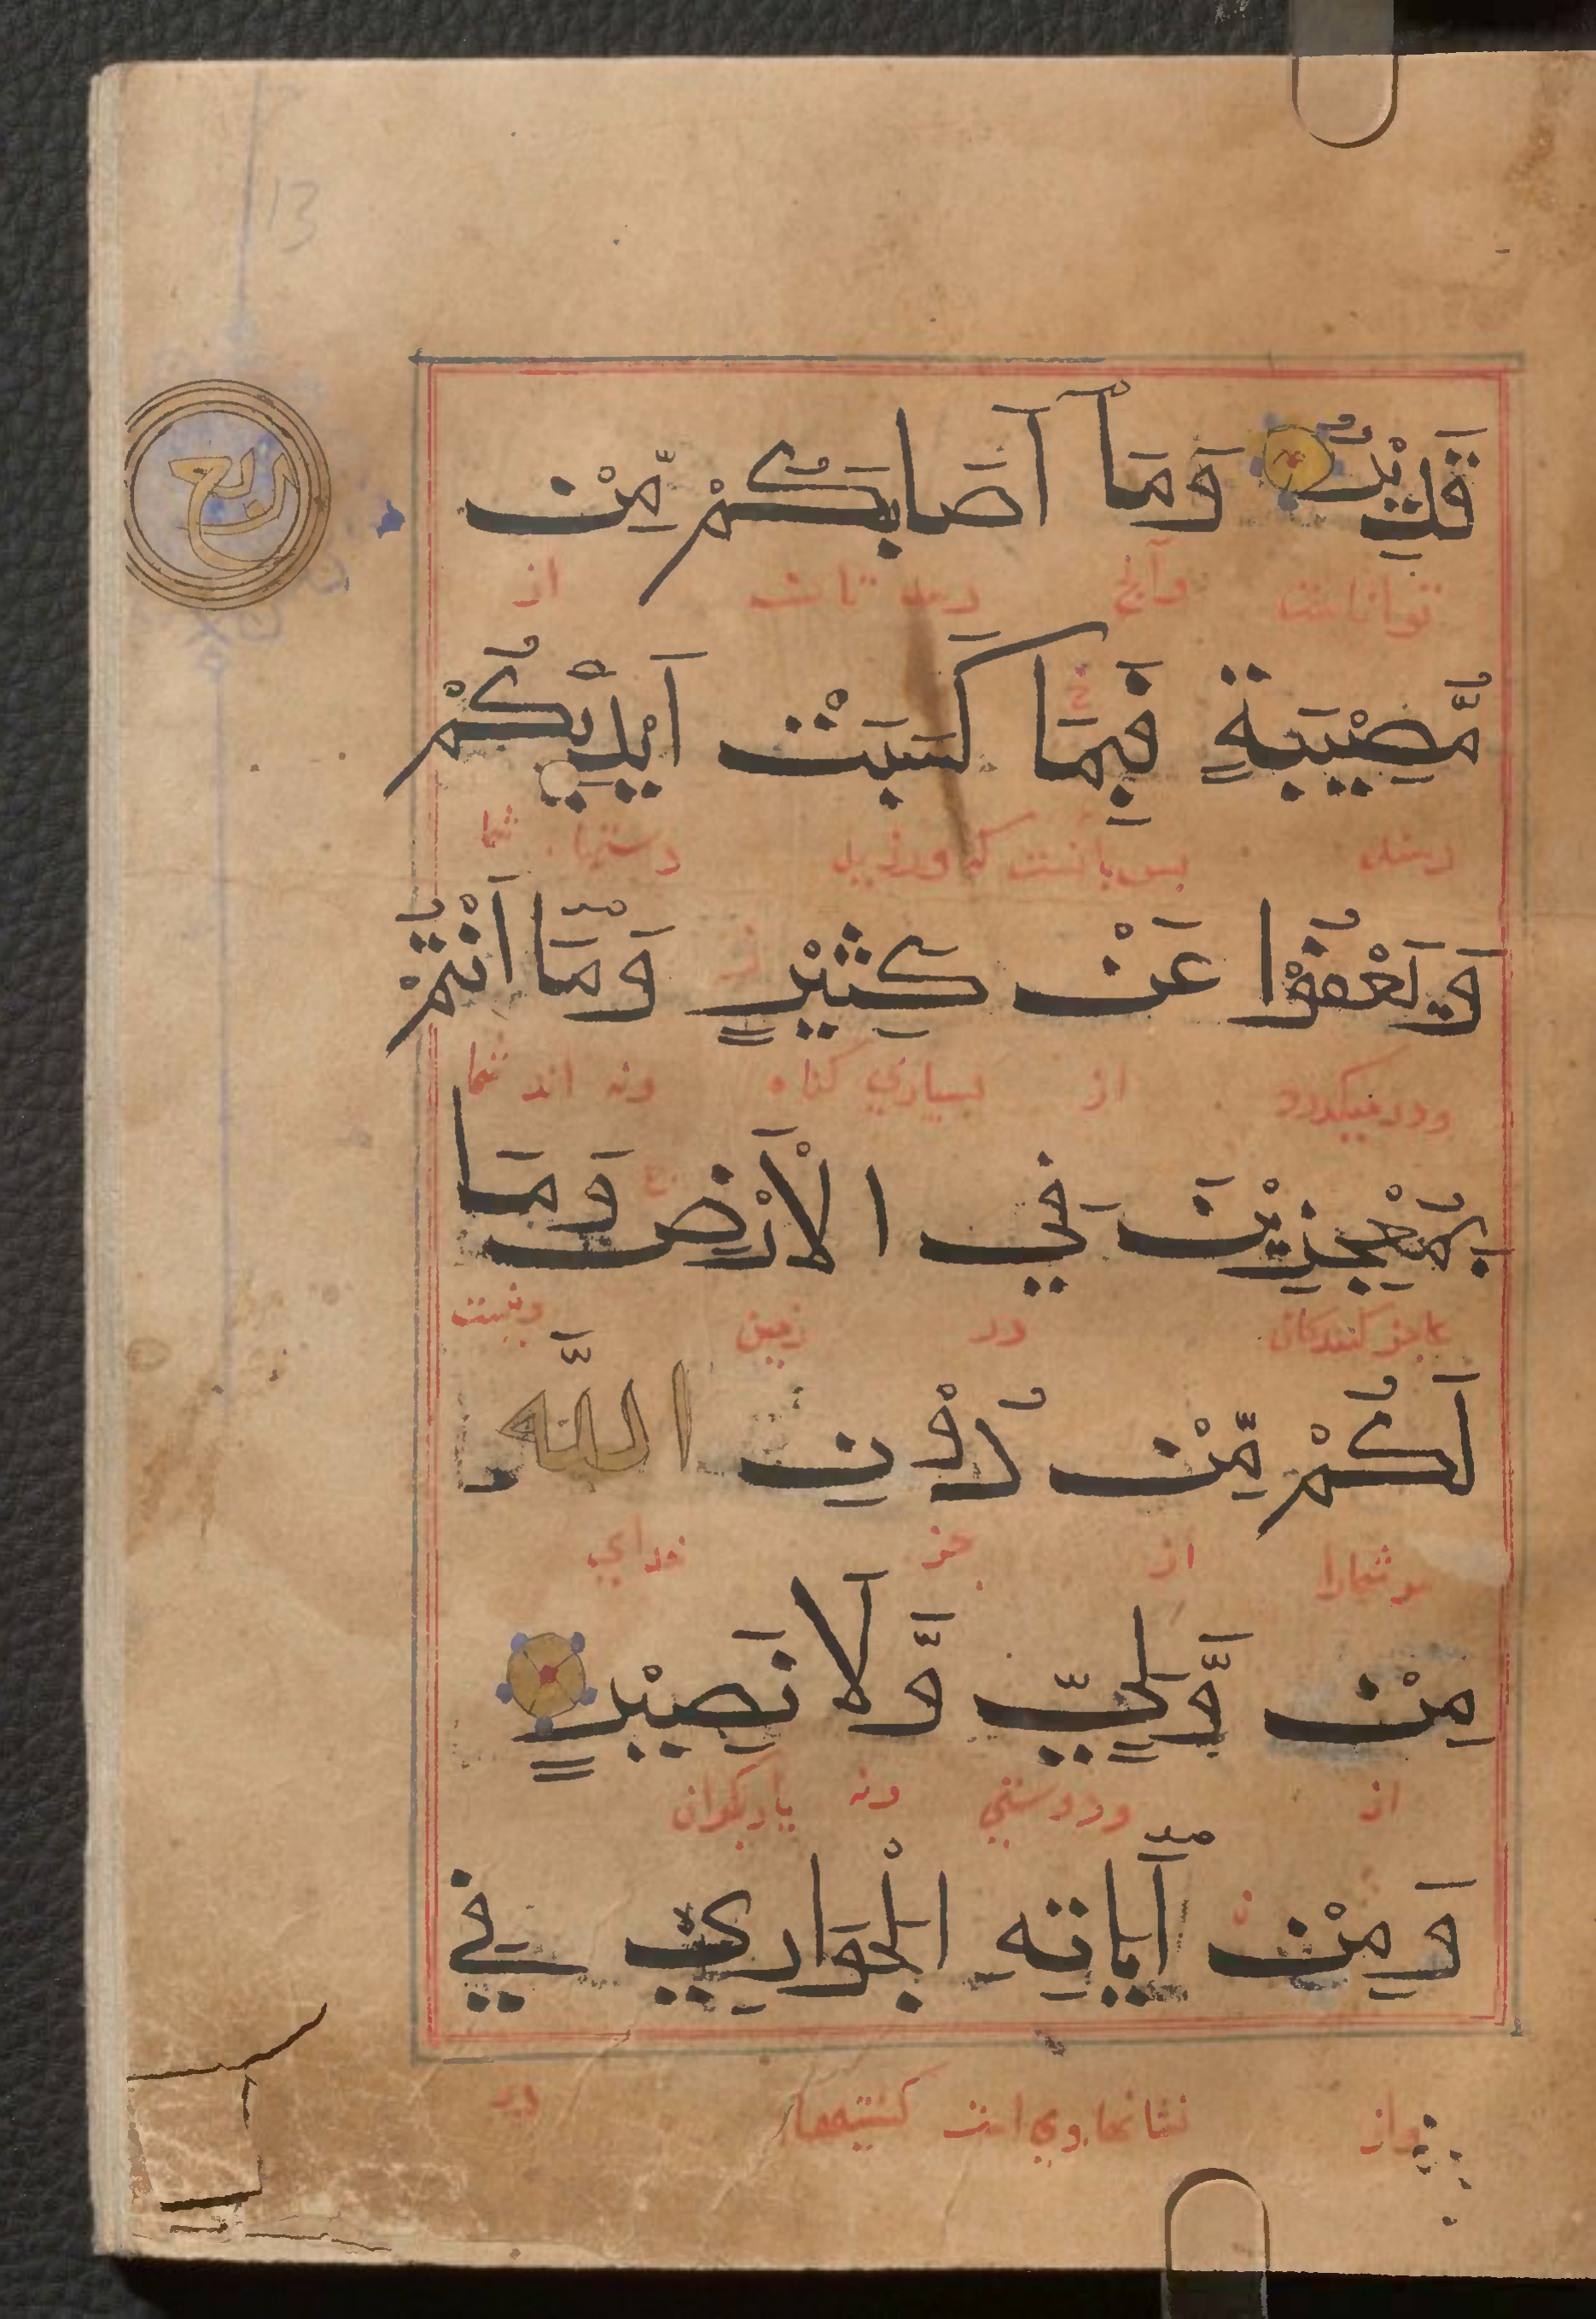 13
قَدِيْرٌ وَمَآ أَصَابَكُمْ مِّنْ
توانااست وآنچ رسد تانـ از
ربع
مُّصِيْبَةٍ فَبِمَا كَسَبَتْ أَيْدِيْكُمْ
رسد بس بآنست که ورزید دستهاء شما
وَيَعْفُوْا عَنْ كَثِيْرٍ وَّمَّآ أَنْتُمْ
ودرمیگذرد از بسیاری کناه ونه اند شما
بِمُعْجِزِيْنَ فِي الْأَرْضِ وَمَا
عاجز کنندکان در زمین ونیست
لَكُمْ مِّنْ دُوْنِ اللَّهِ
مر شمارا از جز خدای
مِنْ وَّلِيٍّ وَّلَا نَصِيْرٍ
از ودوستی ونه یاریکران
وَمِنْ آيَاتِهِ الْجَوَارِي فِي
واز نشانهاء وی است کشتیها در